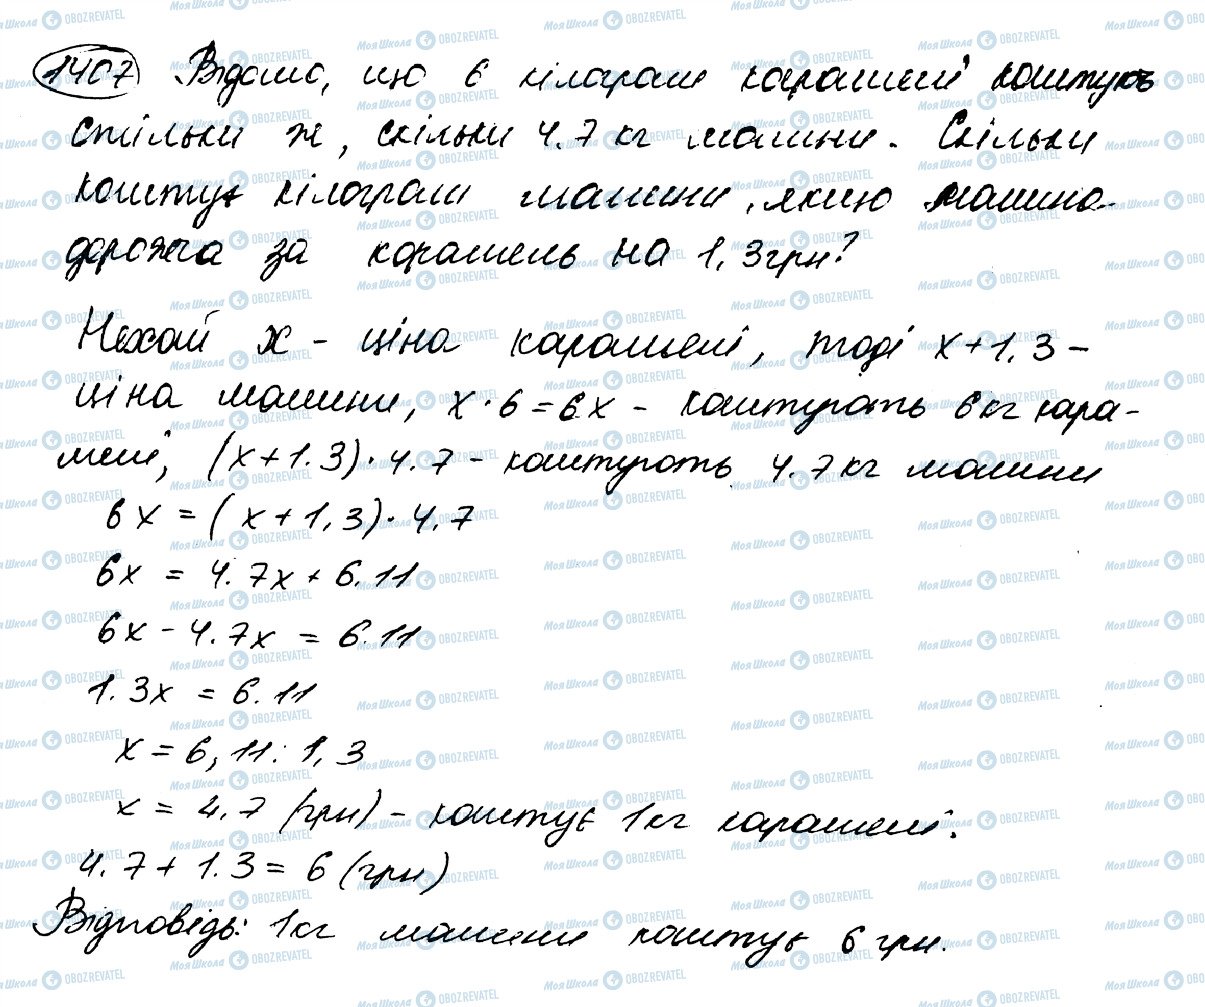 1407 Відомо, що 6 кілограм карамелі коштують
стільки ж, скільки 4.7 кг малини. Скільки
коштує кілограм малини, якщо малина
дорожча за карамель на 1,3 грн?
Нехай x - ціна карамелі, тоді x + 1.3 -
ціна малини, x · 6 = 6x - коштують 6 кг кара-
мелі, (x + 1.3) · 4.7 - коштують 4.7 кг малини
6x = (x + 1,3) · 4,7
6x = 4.7x + 6.11
6x - 4.7x = 6.11
1.3x = 6.11
x = 6,11 : 1,3
x = 4,7 (грн) - коштує 1 кг карамелі.
4.7 + 1.3 = 6 (грн)
Відповідь: 1 кг малини коштує 6 грн.